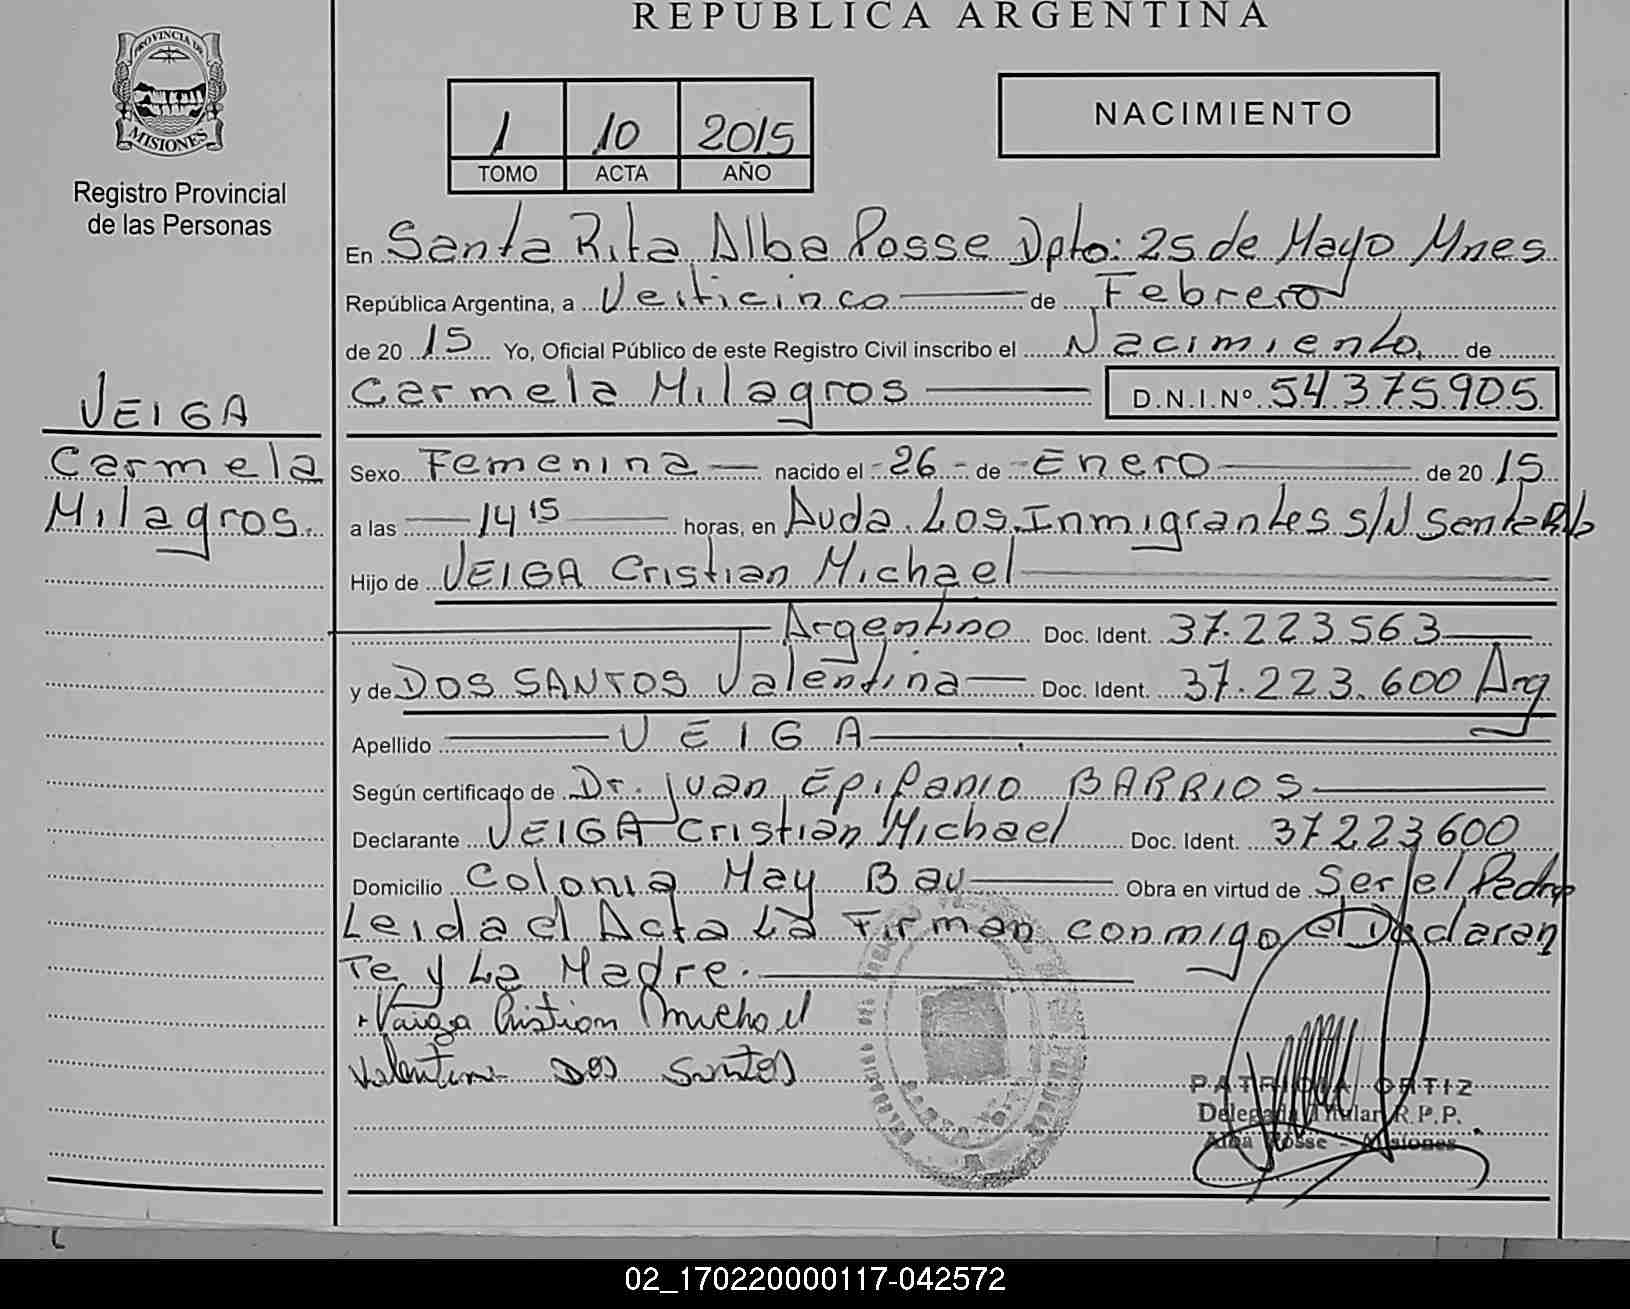 REPUBLICA ARGENTINA
PROVINCIA DE
MISIONES
Registro Provincial
de las Personas
1 10 2015
TOMO ACTA AÑO
NACIMIENTO
En Santa Rita Alba Posse Dpto: 25 de Mayo Mnes
República Argentina, a Veiticinco de Febrero
de 20 15 Yo, Oficial Público de este Registro Civil inscribo el Nacimiento, de
Carmela Milagros D.N.I.Nº 54.375.905
VEIGA
Carmela
Milagros.
Sexo Femenina nacido el 26 de Enero de 20 15
a las 14 15 horas, en Avda. Los Inmigrantes s/N Santa Rita
Hijo de VEIGA Cristian Michael
Argentino Doc. Ident. 37.223.563
y de DOS SANTOS Valentina Doc. Ident. 37.223.600 Arg.
Apellido VEIGA
Según certificado de Dr. Juan Epifanio BARRIOS
Declarante VEIGA Cristian Michael Doc. Ident. 37223600
Domicilio Colonia May Bau Obra en virtud de Ser el Padre
Leida el Acta La Firman conmigo el Declaran
Te y La Madre.
Vaiga Cristian Michael
Valentina Dos Santos
PATRICIA ORTIZ
Delegada Titular R.P.P.
Alba Posse - Misiones
02_170220000117-042572